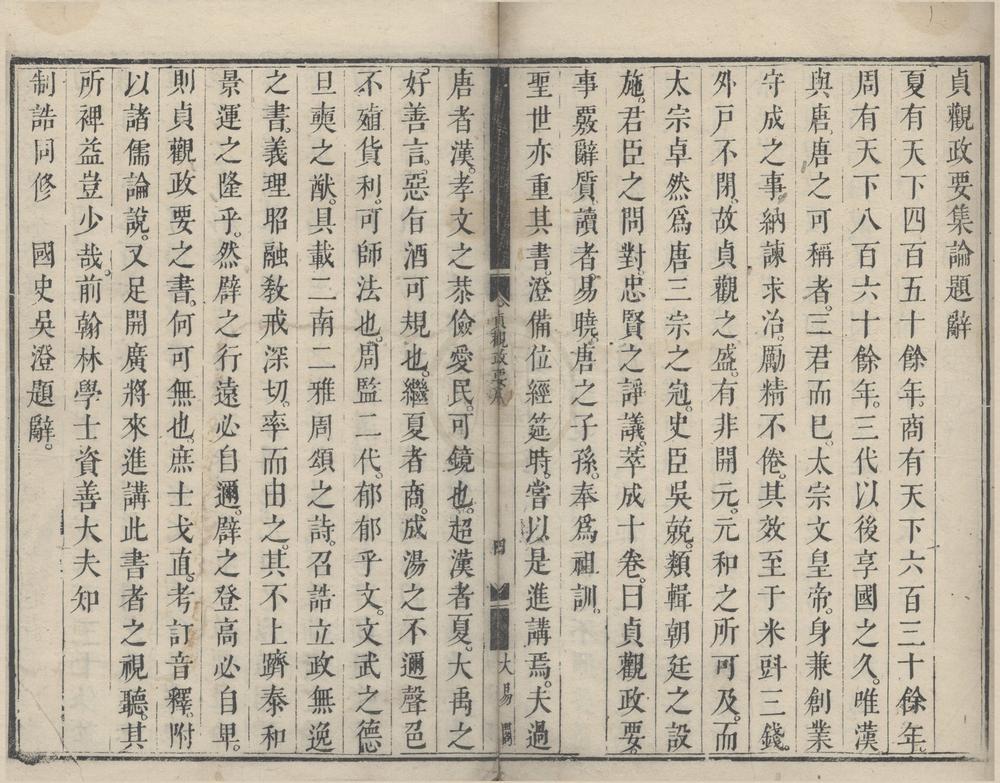 貞觀政要集論題辭
夏有天下四百五十餘年。商有天下六百三十餘年。
周有天下八百六十餘年。三代以後享國之久。唯漢
與唐。唐之可稱者。三君而巳。太宗文皇帝。身兼創業
守成之事。納諫求治。勵精不倦。其效至于米㪷三錢。
外戸不閉。故貞觀之盛。有非開元。元和之所可及。而
太宗卓然爲唐三宗之冠。史臣吳兢。類輯朝廷之設
施。君臣之問對。忠賢之諍議。萃成十卷。曰貞觀政要。
事覈辭質。讀者易曉。唐之子孫。奉爲祖訓。
聖世亦重其書。澄備位經筵時。嘗以是進講焉。夫過
貞觀政要序
四
大易閣
唐者漢。孝文之恭儉愛民。可鏡也。超漢者夏。大禹之
好善言。惡旨酒可規也。繼夏者商。成湯之不邇聲色
不殖貨利。可師法也。周監二代。郁郁乎文。文武之德
旦奭之猷。具載二南二雅周頌之詩。召誥立政無逸
之書。義理昭融教戒深切。率而由之。其不上躋泰和
景運之隆乎。然辟之行遠必自邇。辟之登高必自卑。
則貞觀政要之書。何可無也。庶士戈直。考訂音釋。附
以諸儒論說。又足開廣將來進講此書者之視聽。其
所裨益豈少哉。前翰林學士資善大夫知
制誥同修　國史吳澄題辭。